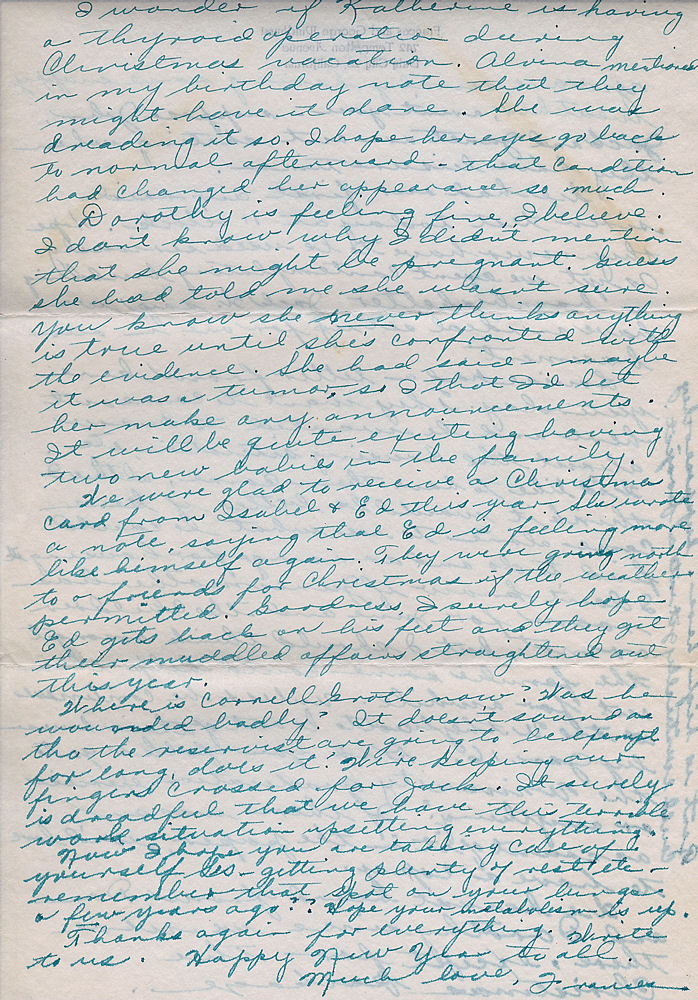 I wonder if Katherine is having
a thyroid operation during
Christmas vacation. Alvina mentioned
in my birthday note that they
might have it done. She was
dreading it so. I hope her eyes go back
to normal afterward - that condition
had changed her appearance so much.
Dorothy is feeling fine, I believe.
I don't know why I didn't mention
that she might be pregnant. Guess
she had told me she wasn't sure.
You know she never thinks anything
is true until she's confronted with
the evidence. She had said maybe
it was a tumor, so I that I'd let
her make any announcements.
It will be quite exciting having
two new babies in the family.
We were glad to receive a Christmas
card from Isabel & Ed this year. She wrote
a note, saying that Ed is feeling more
like himself again. They were going north
to a friends for Christmas if the weather
permitted. Goodness, I surely hope
Ed gets back on his feet and they get
their muddled affairs straightened out
this year.
Where is Correll Groth now? Was he
wounded badly? It doesn't sound as
tho the reservist are going to be exempt
for long, does it? We're keeping our
fingers crossed for Jack. It surely
is dreadful that we have this terrible
work situation upsetting everything.
Now I hope you are taking care of
yourself Les - getting plenty of rest etc -
remember that spot on your lungs
a few years ago?? Hope your metabolism is up.
Thanks again for everything. Write
to us. Happy New Year to all.
Much love, Frances